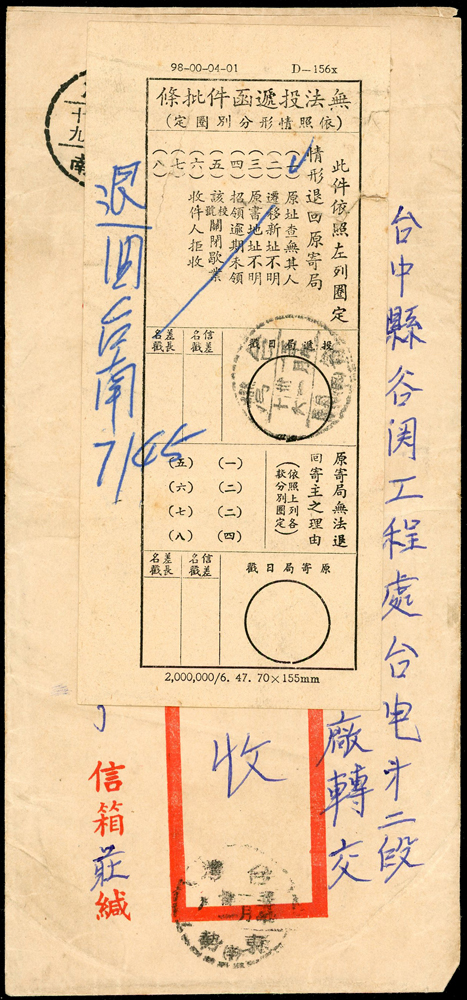 98-00-04-01 D—156x
無法投遞函件批條
(依照情形分別圈定)
此件依照左列圈定
情形退回原寄局
(一) 原址查無其人
(二) 遷移新址不明
(三) 原書地址不明
(四) 招領逾期未領
(五) 該號關閉歇業
(六) 收件人拒收
(七)
(八)
投遞局日戳
信差名戳
差長名戳
原寄局無法退
回寄主之理由
(依照上列各
狀分別圈定)
(一) (五)
(二) (六)
(二) (七)
(四) (八)
原寄局日戳
信差名戳
差長名戳
2,000,000/6. 47. 70×155mm
退回台南
7/45
台中縣谷関工程處台电
二段
廠轉交
收
信箱莊緘
十九
南